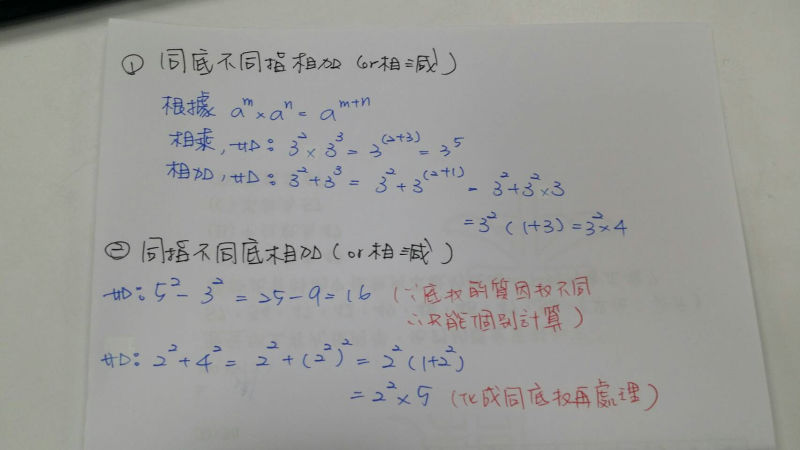 ① 同底不同指相加(or相減)
根據 aᵐ×aⁿ= aᵐ⁺ⁿ
相乘,如: 3²×3³ = 3⁽²⁺³⁾ = 3⁵
相加,如: 3²+3³ = 3²+3⁽²⁺¹⁾ = 3²+3²×3
=3²(1+3)=3²×4
② 同指不同底相加(or相減)
如: 5²-3² = 25-9=16 (∵底数的質因数不同
∴只能個別計算)
如: 2²+4²= 2²+(2²)² = 2²(1+2²)
= 2²×5 (化成同底数再處理)